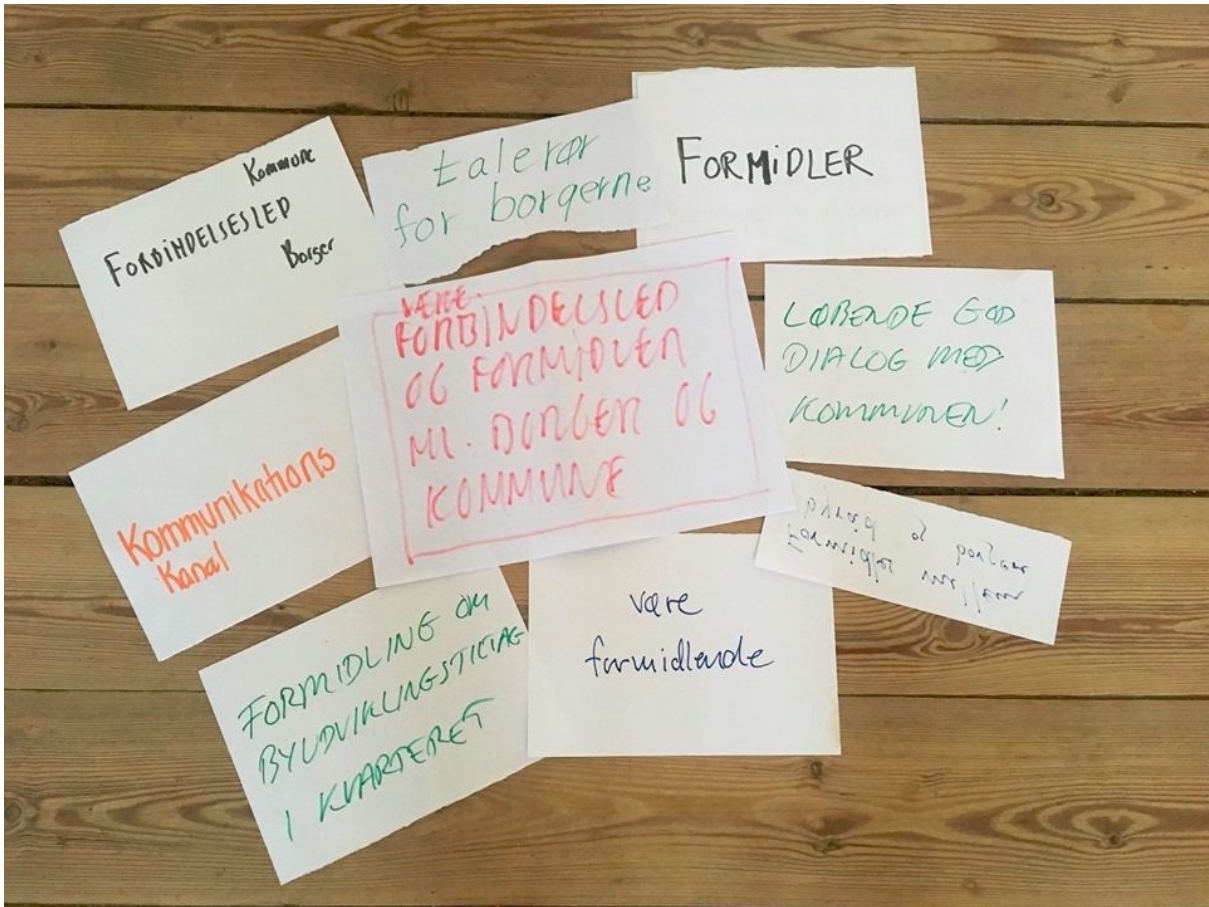 Kommune
FORBINDELSESLED
Borger
talerør
for borgerne
FORMIDLER
VÆRE
FORBINDELSLED
OG FORMIDLER
ML. BORGER OG
KOMMUNE
LØBENDE GOD
DIALOG MED
KOMMUNEN!
Kommunikations
Kanal
Formidler mellem
&
FORMIDLING OM
BYUDVIKLINGSTILTAG
I KVARTERET
være
formidlende